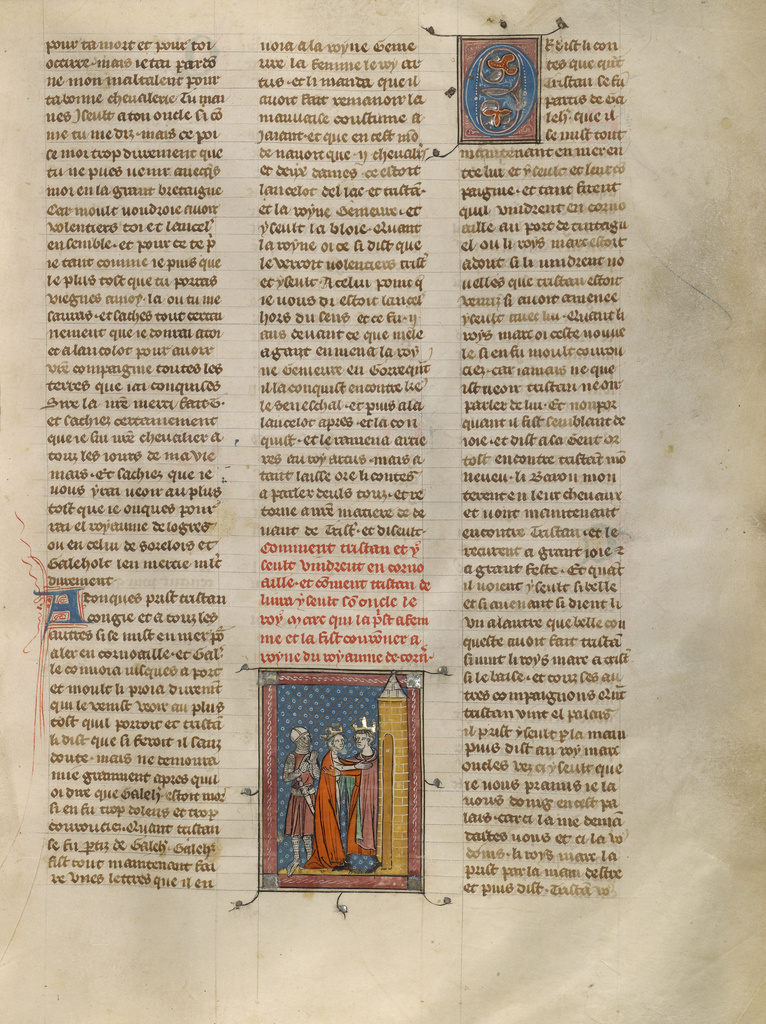 pour ta mort et pour toi
occirre · mais ie tai pardo
ne mon maltalent pour
ta bonne cheualerie Tu mai
nes yseult a ton oncle si co
me tu me diz · mais ce poi
se moi trop durement que
tu ne pues venir auecqs
moi en la grant bretaigne
Car moult voudroie auoir
volentiers toi et lancel'
ensemble · et pour ce te p
ie tant comme ie puis que
le plus tost que tu porras
viegnes a moy · la ou tu me
sauras · et saches tout certai
nement que ie donrai a toi
et a lancelot pour auoir
vre compaignie toutes les
terres que iai conquises
Sire la vre merci fait T ·
et sachiez certainement
que ie sui vre cheualier a
touz les iours de ma vie
mais · Et sachiez que ie
vous yrai veoir au plus
tost que ie onques pour
rai el royaume de logres
ou en celui de sorelois et
Galeholt len mercie mlt
durement
Adonques prist tristan
congie et a touz les
autres si se mist en mer po
aler en cornoaille · et Gal'
le conuoia iusques a port
et moult li proia durent
quil le venist veoir au plus
tost quil porroit et trista
li dist que si feroit il sanz
doute · mais ne demoura
mie granment apres quil
oi dire que Galeh' estoit mor
si en fu trop dolens et trop
courrouciez · Quant tristan
se fu ptiz de Galeh' · Galeh'
fist tout maintenant fai
re vnes lettres que il en
uoia a la royne Geme
ure la femme le roy ar
tus · et li manda que il
auoit fait remanoir la
mauuaise coustume a
iaiant · et que en cest mo
de nauoit que · ij · cheualiers
et deux dames · ce estoit
lancelot del lac et trista ·
et la royne Gemeure · et
yseult la bloie · Quant
la royne oi ce si dist que
le verroit volentiers trist'
et yseult · A celui point q
ie vous di estoit lancel'
hors du sens et ce fu · ij ·
ans deuant ce que mele
agant en mena la roy
ne Gemeure en Gorre quant
il la conquist encontre ke'
le seneschal · et puis a la
lancelot apres · et la con
quist · et le ramena arrie
res au roy artus · mais a
tant laisse ore li contes
a parler deuls touz · et re
torne a vre matiere de de
uant de Trist' · et diseult ·
Comment tristan et y
seult vindrent en corno
aille · et coment tristan de
liura yseult so oncle le
roy marc qui la pst a fem
me et la fist couronner a
royne du royaume de corn' ·
Or dist li con
tes que quat
Tristan se fu
partis de Ga
leh' · que il
se mist tout
maintenant en mer en
tre lui et yseult et leur co
paignie · et tant firent
quil vindrent en corno
aille au port de tintagu
el · ou li roys marc estoit
adont si li vindrent no
uelles que tristan estoit
venuz si auoit amenee
yseult auec lui · Quant li
roys marc oi ceste nouue
le si en fu moult courou
ciez · car iamais ne que
ist veoir tristan ne oir
parler de lui · Et nonpor
quant il fist semblant de
ioie · et dist a sa Gent or
tost encontre tristan mo
neueu · li Baron mon
terent en leur cheuaux
et vont maintenant
encontre Tristan · et le
recurent a grant ioie et
a grant feste · Et quat
il voient yseult si belle
et si auenant si dient li
vn a lautre que belle con
queste auoit fait trista
si uint li roys marc a trist'
si le baise · et touz ses au
tres compaignons Quat
tristan vint el palais
il prist yseult p la main
puis dist au roy marc
Oncles vez ci yseult que
ie vous pramis ie la
vous doing en cest pa
lais · car ci la me dema
dastes vous et ci la vo
doins · li roys marc la
prist par la main destre
et puis dist · Tristan vo